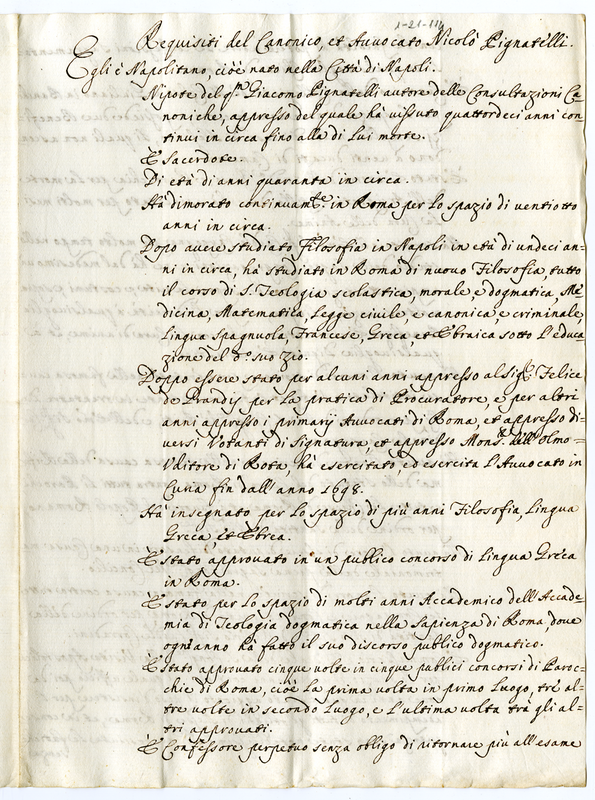 1-21-11
Requisiti del Canonico, et Avvocato Nicolò Pignatelli.
Egli è Napolitano, cioè nato nella Città di Napoli.
Nipote del qm Giacomo Pignatelli autore delle Consultazioni Ca=
noniche, appresso del quale hà vissuto quattordeci anni con
tinui in circa fino alla di Lui morte.
È Sacerdote.
Di età di anni quaranta in circa.
Hà dimorato continuamte in Roma per lo spazio di ventiotto
anni in circa.
Dopo avere studiato Filosofia in Napoli in età di undeci an=
ni in circa, hà studiato in Roma di nuovo Filosofia, tutto
il corso di S. Teologia scolastica, morale, e dogmatica, Me=
dicina, Matematica, Legge civile, e canonica, e criminale,
Lingua Spagnuola, Francese, Greca, et Ebraica sotto L'educa
zione del do suo zio.
Doppo essere stato per alcuni anni appresso al Sigr Felice
de Prandij per La pratica di Procuratore, e per altri
anni appresso i primarij Avvocati di Roma, et appresso di=
versi Votanti di Signatura, et appresso Monsr dell'olmo
Uditore di Rota, hà esercitato, ed esercita L'Avvocato in
Curia fin dall'anno 1698.
Hà insegnato per Lo spazio di più anni Filosofia, Lingua
Greca, et Ebrea.
È stato approvato in un publico concorso di Lingua Greca
in Roma.
È stato per Lo spazio di molti anni Accademico dell'Accade=
mia di Teologia dogmatica nella Sapienza di Roma, dove
ogn'anno hà fatto il suo discorso publico dogmatico.
È stato approvato cinque volte in cinque publici concorsi di Paroc=
chie di Roma, cioè La prima volta in primo Luogo, trè al=
tre volte in secondo Luogo, e L'ultima volta trà gli al=
tri approvati.
È Confessore perpetuo senza obligo di ritornare più all'esame